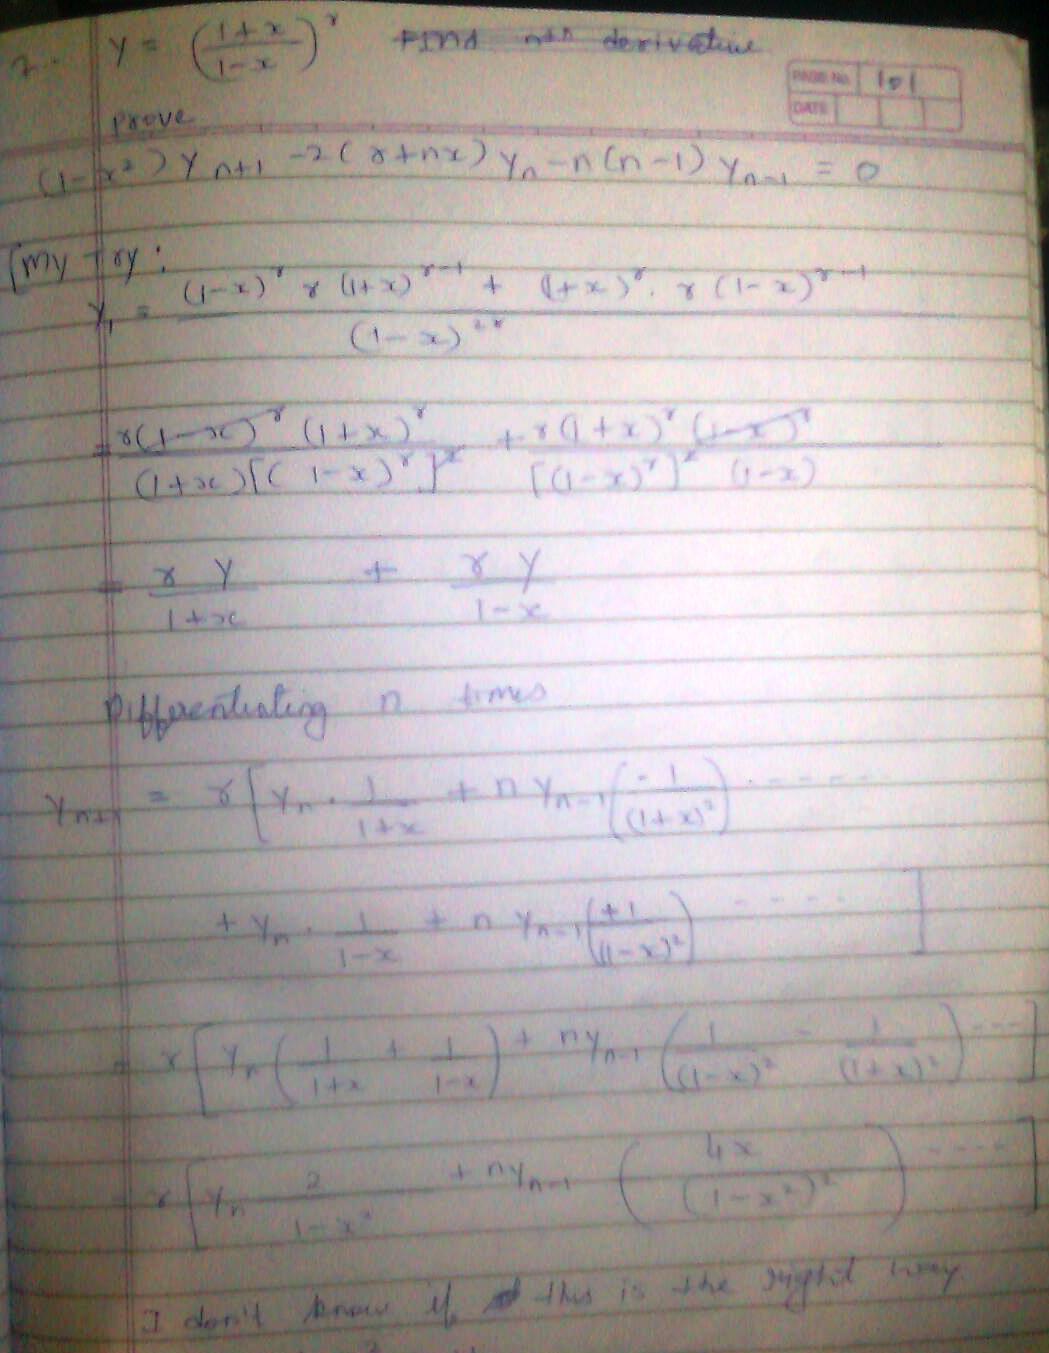 2. y = (1+x / 1-x)^r Find nth derivative
PAGE No. 101
DATE
prove
(1-x²) y_{n+1} -2(r+nx) y_n -n(n-1) y_{n-1} = 0
[My try:
y_1 = (1-x)^r r (1+x)^{r-1} + (1+x)^r . r (1-x)^{r-1} / (1-x)^{2r}
= r(1-x)^r (1+x)^r / (1+x)[(1-x)^r]^2 + r(1+x)^r (1-x)^r / [(1-x)^r]^2 (1-x)
= r y / 1+x + r y / 1-x
Differentiating n times
y_{n+1} = r [ y_n . 1 / 1+x + n y_{n-1} ( -1 / (1+x)² ) ------
+ y_n . 1 / 1-x + n y_{n-1} ( +1 / (1-x)² ) ---- ]
= r [ y_n ( 1 / 1+x + 1 / 1-x ) + n y_{n-1} ( 1 / (1-x)² - 1 / (1+x)² ) --- ]
= r [ y_n 2 / 1-x² + n y_{n-1} ( 4x / (1-x²)² ) ---- ]
I don't know if this is the right way